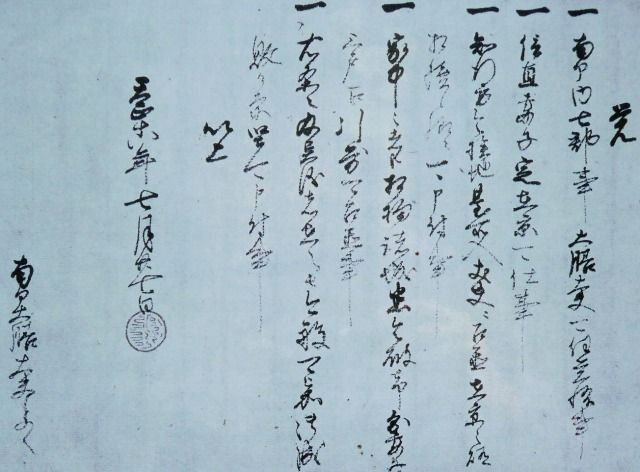 覚
一 南部内七郡事大膳大夫可任覚悟事
一 信直妻子定在京可仕事
一 知行方令検地台所入丈夫ニ召置在京之賄
相続候様ニ可申付事
一 家中之者共相拘諸城悉令破却則妻子
三戸江引寄可召置事
一 右条々及異儀者在之者今般可被加御成
敗候条堅可申付事
以上
天正十八年七月廿七日
南部大膳大夫とのへ